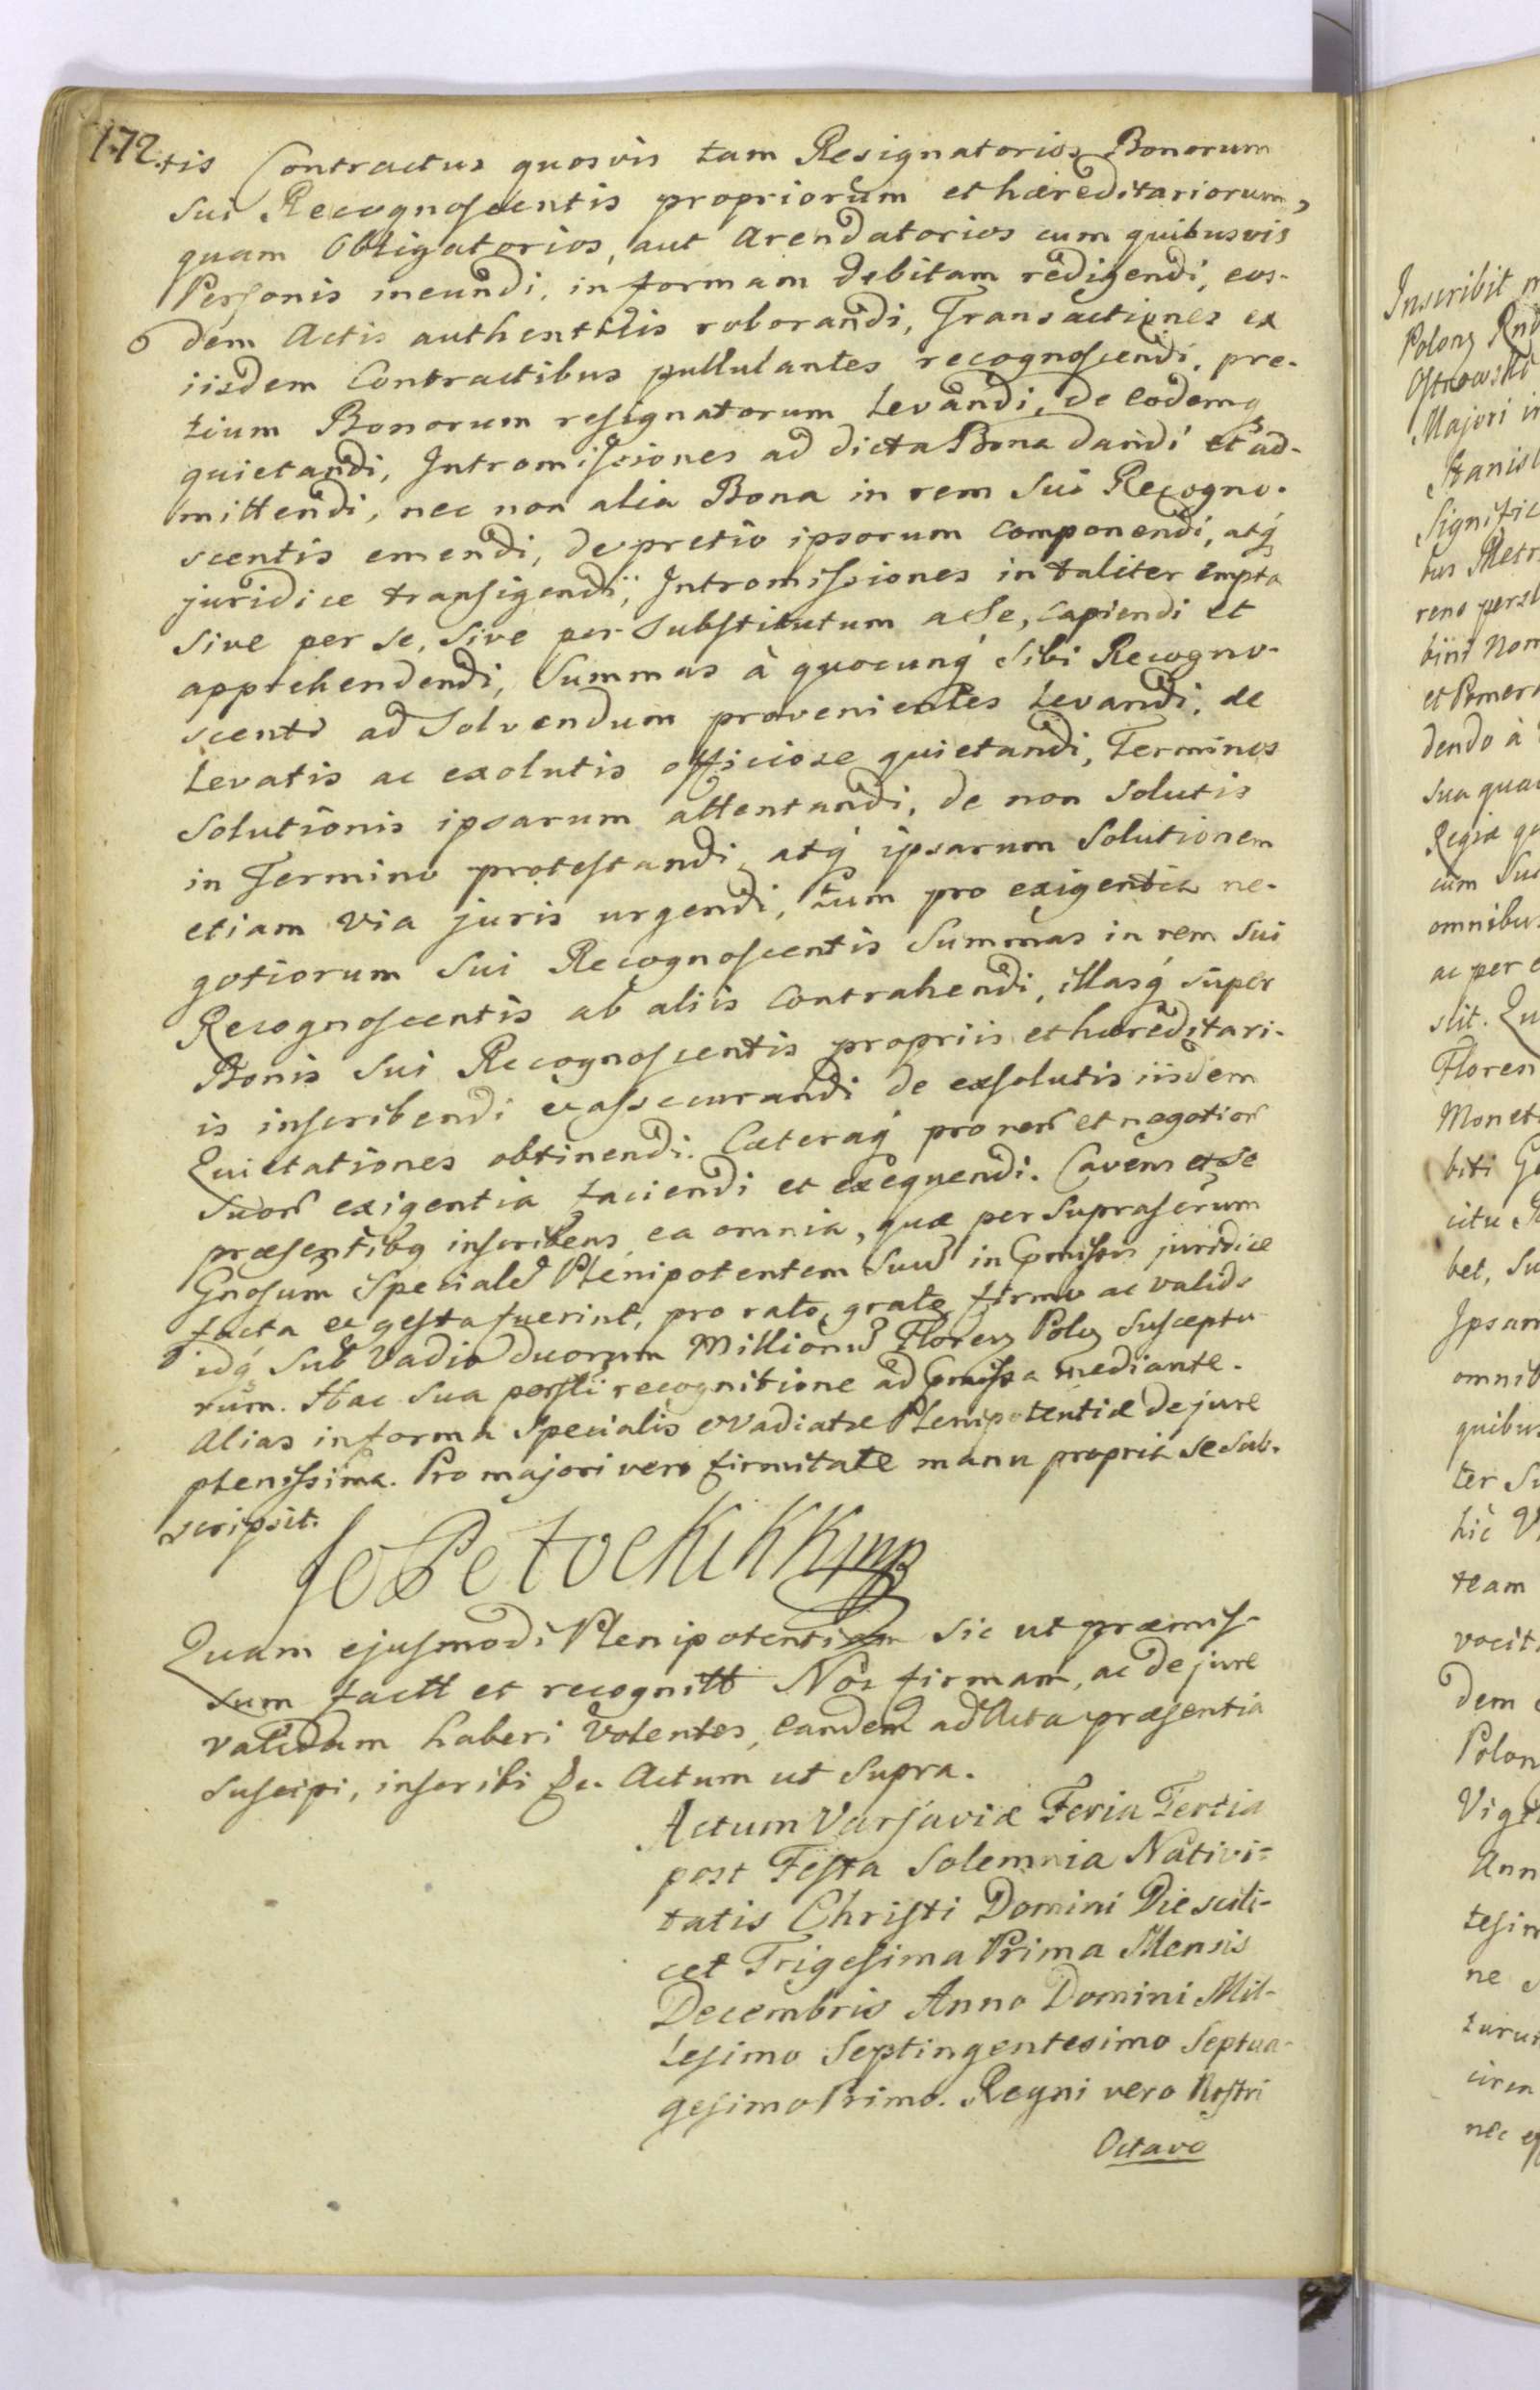 172.
tis Contractus quosvis tam Resignatorios Bonorum
sui Recognoscentis propriorum et hæreditariorum,
quam Obligatorios, aut Arendatorios cum quibusvis
Personis ineundi, in formam debitam redigendi, eos-
dem Actis authenticis roborandi, Transactiones ex
iisdem Contractibus pullulantes recognoscendi, pre-
tium Bonorum resignatorum levandi, de eodemq
quietandi, Intromissiones ad dicta Bona dandi et ad-
mittendi, nec non alia Bona in rem sui Recogno-
scentis emendi, de pretio ipsorum componendi, atq
juridice transigendi, Intromissiones in taliter empta
sive per se, sive per substitutum a se, capiendi et
apprehendendi, Summas à quocunq sibi Recogno-
scenti ad solvendum provenientes levandi, de
levatis ac exolutis officiose quietandi, Terminos
solutionis ipsarum attentandi, de non solutis
in Termino protestandi, atq ipsarum solutionem
etiam via juris urgendi, tum pro exigentia ne-
gotiorum sui Recognoscentis Summas in rem sui
Recognoscentis ab aliis contrahendi, illasq super
Bonis sui Recognoscentis propriis et hæreditari-
is inscribendi et assecurandi de exsolutis iisdem
Quietationes obtinendi. Cæteraq pro rerū et negotiorū
suorū exigentia faciendi et exequendi. Cavens et se
præsentibq inscribens ea omnia, quæ per suprascrum
Gnosum Specialē Plenipotentem suū in Pmissis juridice
facta et gesta fuerint, pro rato, grato, firmo ac valido
idq sub Vadio duorum Millionū Floren Polon susceptu-
rum. Hac sua persli recognitione ad Pmissa mediante.
Alias in forma Specialis et Vadiatæ Plenipotentiæ de jure
plenissima. Pro majori vero firmitate manu propria se sub-
scripsit.
Quam ejusmodi Plenipotentiam sic ut præmis-
sum factā et recognitā Nos firmam, ac de jure
validam haberi volentes, eandem ad Acta præsentia
suscipi, inscribi &c. Actum ut supra.
Actum Varsaviæ Feria Tertia
post Festa Solemnia Nativi-
tatis Christi Domini Die scili-
cet Trigesima Prima Mensis
Decembris Anno Domini Mil-
lesimo Septingentesimo Septua-
gesimo Primo. Regni vero Nostri
Octavo
Inscribit
Polon
Majori
Stanisl
Signific
tus Metr
reno persl
bini Nom
et Pomer
dendo à
sua
Regiæ
cum
omnibus
ac per
slit.
Floren
Monet
biti
citu
bet,
Ipsam
omnib
quibus
ter
hic
team
vocit
dem
Polon
Vig
Ann
tesim
ne
nec